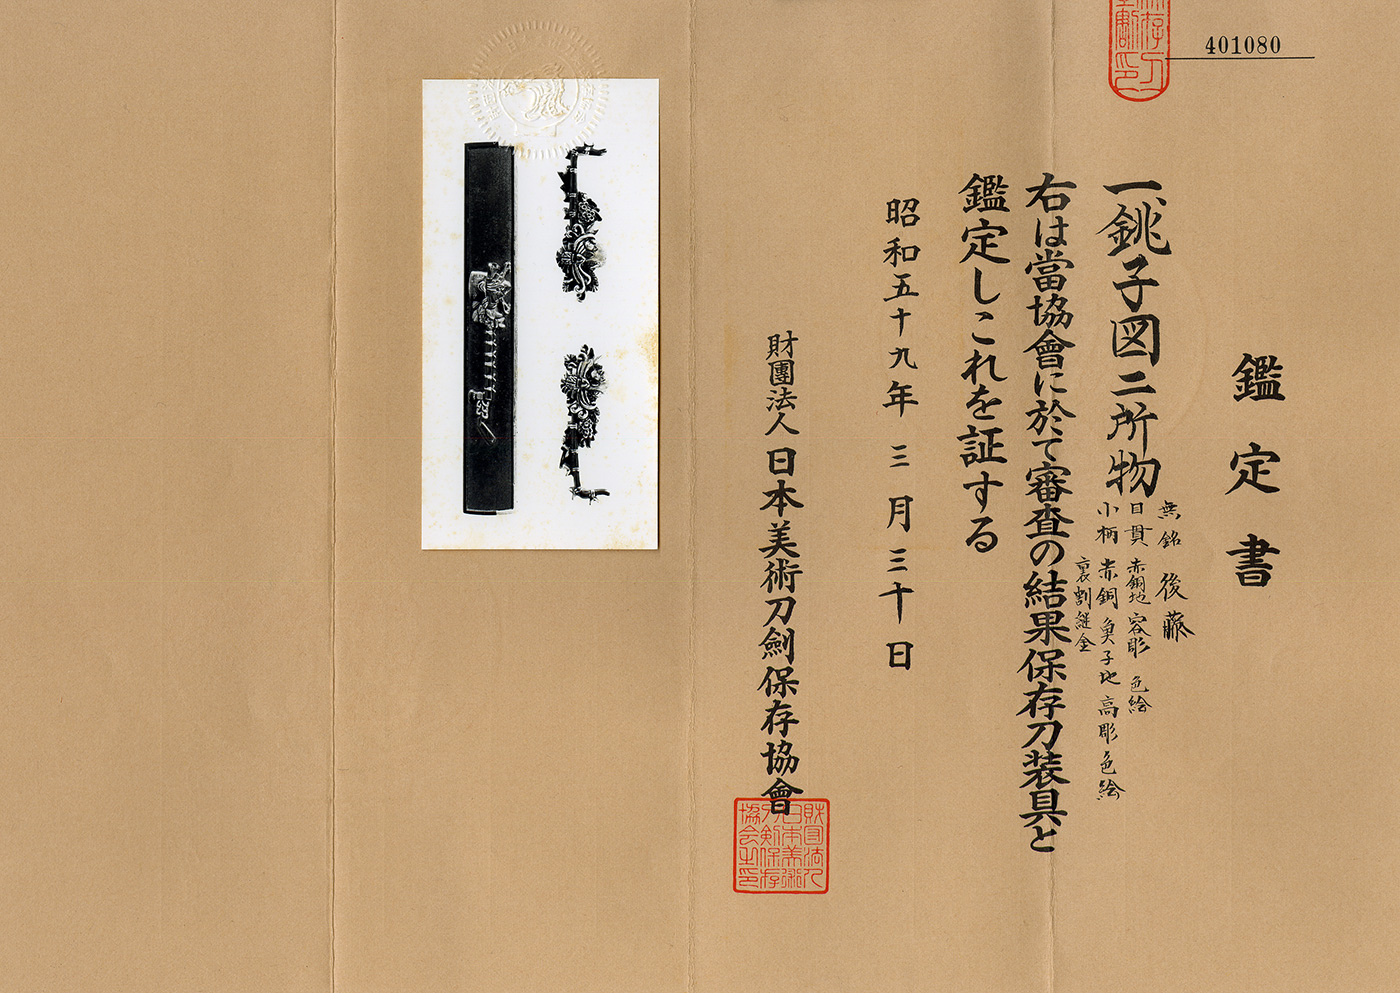 401080
鑑定書
一、銚子図二所物
無銘 後藤
目貫 赤銅地 容彫 色絵
小柄 赤銅魚子地高彫色絵
裏割継金
右は當協會に於て審査の結果保存刀装具と
鑑定しこれを証する
昭和五十九年三月三十日
財團法人日本美術刀劍保存協會
財団法人
日本美術
刀剣保存
協会之印